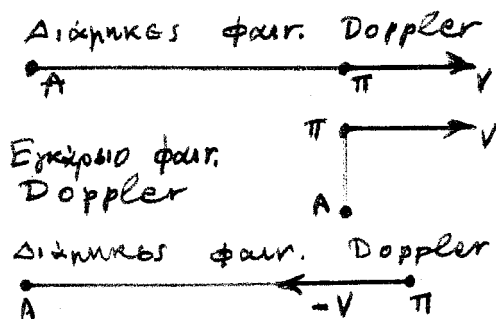 Διάμηκες φαιν. Doppler
A Π V
Π V
Εγκάρσιο φαιν.
Doppler
A
Διάμηκες φαιν. Doppler
A -V Π